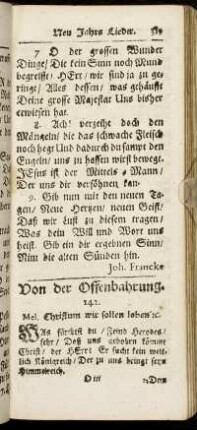 Neu Jahrs Lieder.
7 O der grossen Wunder
Dinge/ Die kein Sinn noch Mund
begreifft/ HErr/ wir sind ja zu ge-
ringe/ Alles dessen/ was gehäufft
Deine grosse Majestat Uns bisher
erwiesen hat.
8. Ach! verzeihe doch den
Mängeln/ die das schwache Fleisch
noch hegt Und dadurch du sampt den
Engeln/ uns zu hassen wirst bewegt.
JEsus ist der Mittels-Mann/
Der uns dir versöhnen kan.
9. Gib nun mit den neuen Ta-
gen/ Neue Hertzen/ neuen Geist/
Daß wir Lust zu diesem tragen/
Was dein Will und Wort uns
heist. Gib ein dir ergebnen Sinn/
Nim die alten Sünden hin.
Joh. Francke
Von der Offenbahrung.
142.
Mel. Christum wir sollen loben ꝛc.
WAs fürchstu du/ Feind Herodes/
sehr/ Daß uns gebohren kömmt
Christ/ der HErr? Er sucht kein welt-
lich Königreich/ Der zu uns bringt sein
Himmelreich.